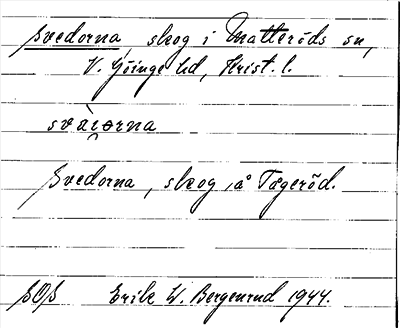 Svedorna, skog i Matteröds sn,
V. Göinge hd, Krist. l.
svài̯orna
Svedorna, skog, å Tågeröd.
SOS Erik W. Bergenrud 1944.